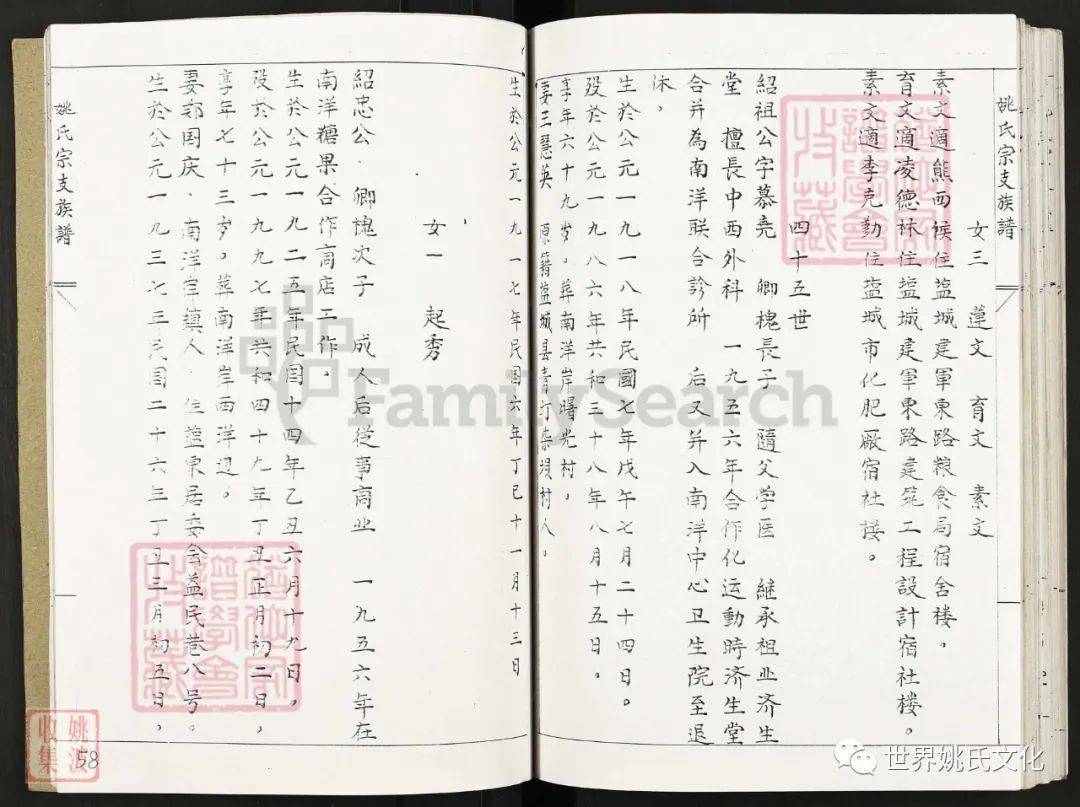 姚氏宗支族譜
女三 蓮文 育文 素文
素文適熊西候住盐城建軍東路粮食局宿舍楼。
育文適凌德林住盐城建軍東路建筑工程設計宿社楼。
素文適李克勤住盐城市化肥廠宿社楼。
四十五世
紹祖公字慕尧 卿槐長子 隨父学医 继承祖业济生
堂 擅長中西外科 一九五六年合作化运動時济生堂
合并為南洋联合診所 后又并入南洋中心卫生院至退
休,
生於公元一九一八年民國七年戊午七月二十四日。
殁於公元一九八六年共和三十八年八月十五日。
享年六十九岁,葬南洋岸曙光村。
妻王慧英 原籍盐城县青行村人。
生於公元一九一七年民国六年丁巳十一月十三日
女一 起秀
紹忠公·卿槐次子 成人后從事商业 一九五六年在
南洋糖果合作商店工作。
生於公元一九二五年民国十四年乙丑六月十九日。
殁於公元一九九七年共和四十九年丁丑正月初二日,
享年七十三岁。葬南洋岸西洋边,
妻郭国庆·南洋岸鎮人·住盐東居委会益民巷八号。
生於公元一九三七年民国二十六年丁丑三月初五日,
姚氏宗支族譜
58
姚淩
收集
FamilySearch
世界姚氏文化